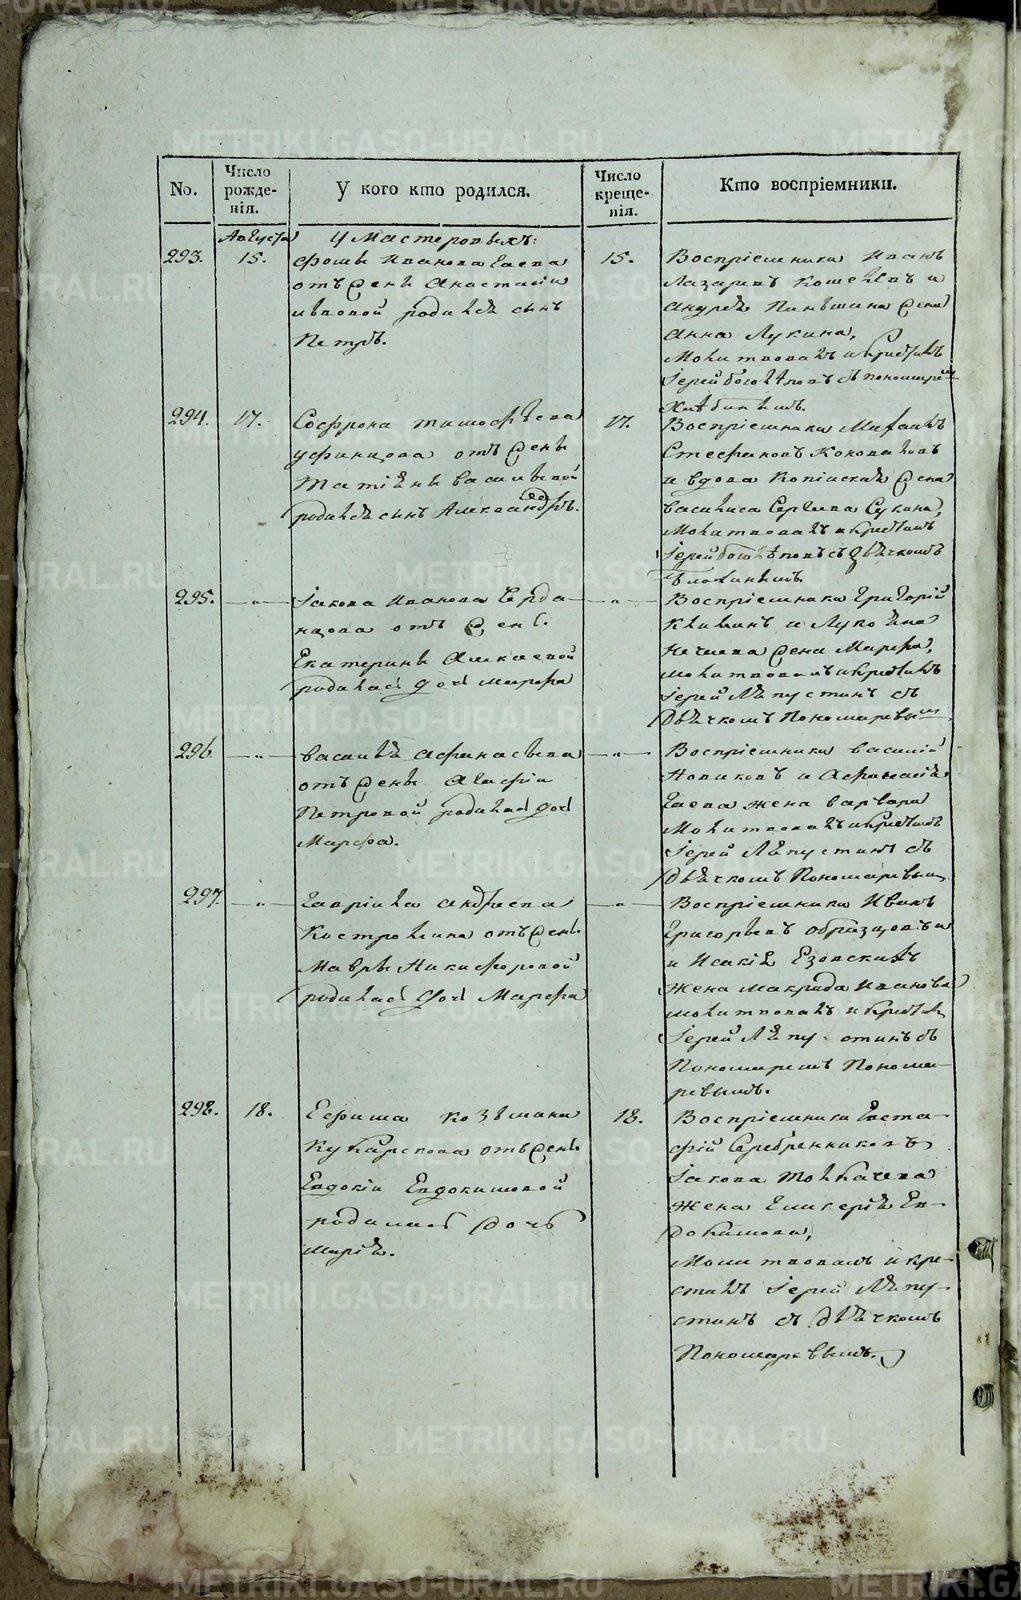 No.
Число рожде-нія.
У кого кто родился.
Число креще-нія.
Кто воспріемники.
Августа
У Мастеровыхъ:
293.
15.
Фомы Иванова Гаева
отъ жены Анастасіи
родился сынъ
Петръ.
15.
Воспріемники Иванъ
Лазаревъ Кошелевъ и
Андрея жена
Анна Лукина,
Молитвовалъ и крестилъ
Іерей Боголѣповъ съ пономаремъ
294.
17.
Софрона Тимофѣева
Уфинцова отъ жены
Татіяны Васильевой
родился сынъ Александръ.
17.
Воспріемники Михаилъ
Стефановъ Коноваловъ
и вдова жена
Василиса Сергѣева Сукина,
Молитвовалъ и крестилъ
Іерей Боголѣповъ съ дьячкомъ
295.
— „ —
Іакова Иванова
отъ жены
Екатерины Алексѣевой
родилась дочь Марфа
— „ —
Воспріемники Григорій
и Лукояна
жена Марфа,
молитвовалъ и крестилъ
Іерей Ляпустинъ съ
дьячкомъ Пономаревымъ
296.
— „ —
Василья Афанасьева
отъ жены Агафіи
Петровой родилась дочь
Марфа.
— „ —
Воспріемники Василій
Новиковъ и Афанасія
Гаева жена Варвара
Молитвовалъ и крестилъ
Іерей Ляпустинъ съ
дьячкомъ Пономаревымъ
297.
— „ —
Гавріила Андреева
Костромина отъ жены
Мавры Никифоровой
родилась дочь Марфа
— „ —
Воспріемники Иванъ
Григорьевъ Образцовъ
и Исакія Езовскихъ
жена Макрида Иванова
молитвовалъ и крестилъ
Іерей Ляпустинъ съ
Пономаремъ Понома-
ревымъ.
298.
18.
Ефима Козьмина
отъ жены
Евдокіи Евдокимовой
родилась дочь
Марія.
18.
Воспріемники Евста-
фій Серебренниковъ
Іакова Толкачева
жена Гликерія Ев-
докимова,
Молитвовалъ и кре-
стилъ Іерей Ляпу-
стинъ съ дьячкомъ
Пономаревымъ.
METRIKI.GASO-URAL.RU